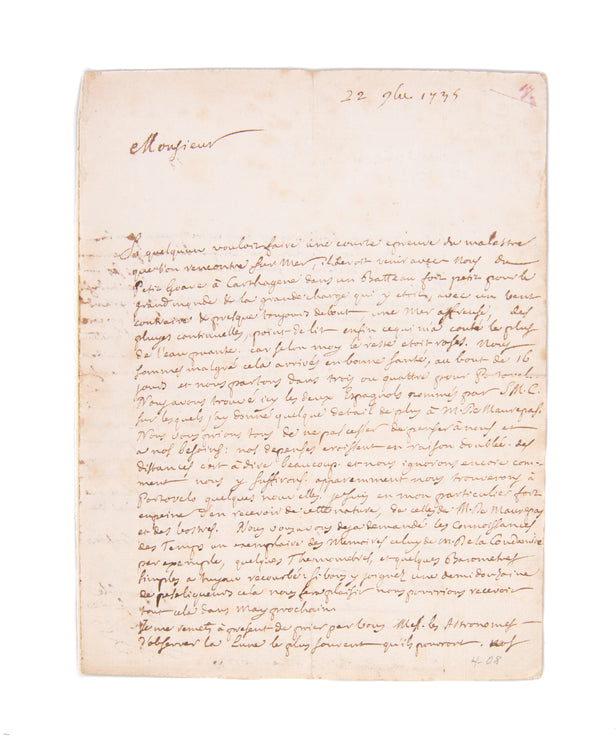 22 9bre 1735
Monsieur
Si quelquun vouloit faire une courte epreuve du malestre
que lion rencontre sur Mer, il devoit venir avec Nous du
Petit Goave a Carthagene dans un Batteau fort petit pour le
grand monde et la grande charge qui y etoit, avec un vent
contraire et presque toujours debout une Mer affreuse, des
pluyes continuelles, point de lit enfin ce qui m'a couté le plus
de l'eau puante. car selon moy le reste etoit roses. Nous
sommes malgré cela arrivés en bonne santé, au bout de 16
jours et nous partons dans trois ou quattre pour Portovelo
Nous avons trouvé icy les deux Espagnols nommés par S.M.C.
sur lesquels j'ay donné quelque detail de plus à M. De Maurepas.
Nous vous prions tous de ne pas cesser de penser à nous et
a nos besoins: nos depenses croissent en raison doublée des
distances cest à dire beaucoup et nous ignorons encore com-
ment nous y suffirons. apparemment nous trouverons à
Portovelo quelques nouvelles, je suis en mon particulier fort
en peine d'en recevoir de cette nature, de celles de M. De Maurepas
et des vostres. Nous vous avons deja demandé les Connoissances
des Temps un exemplaire des Memoires celuy de M. De la Condamine
par exemple, quelques Thermometres, et quelques Barometres
simples a tuyau recourbé: si vous y joignez une demi douzaine
de cela nous fera plaisir nous pourrions recevoir
tout cela dans May prochain
Je me remets à present de prier par vous Mess. les Astronomes
d'observer la Lune le plus souvent qu'ils pourront.
408